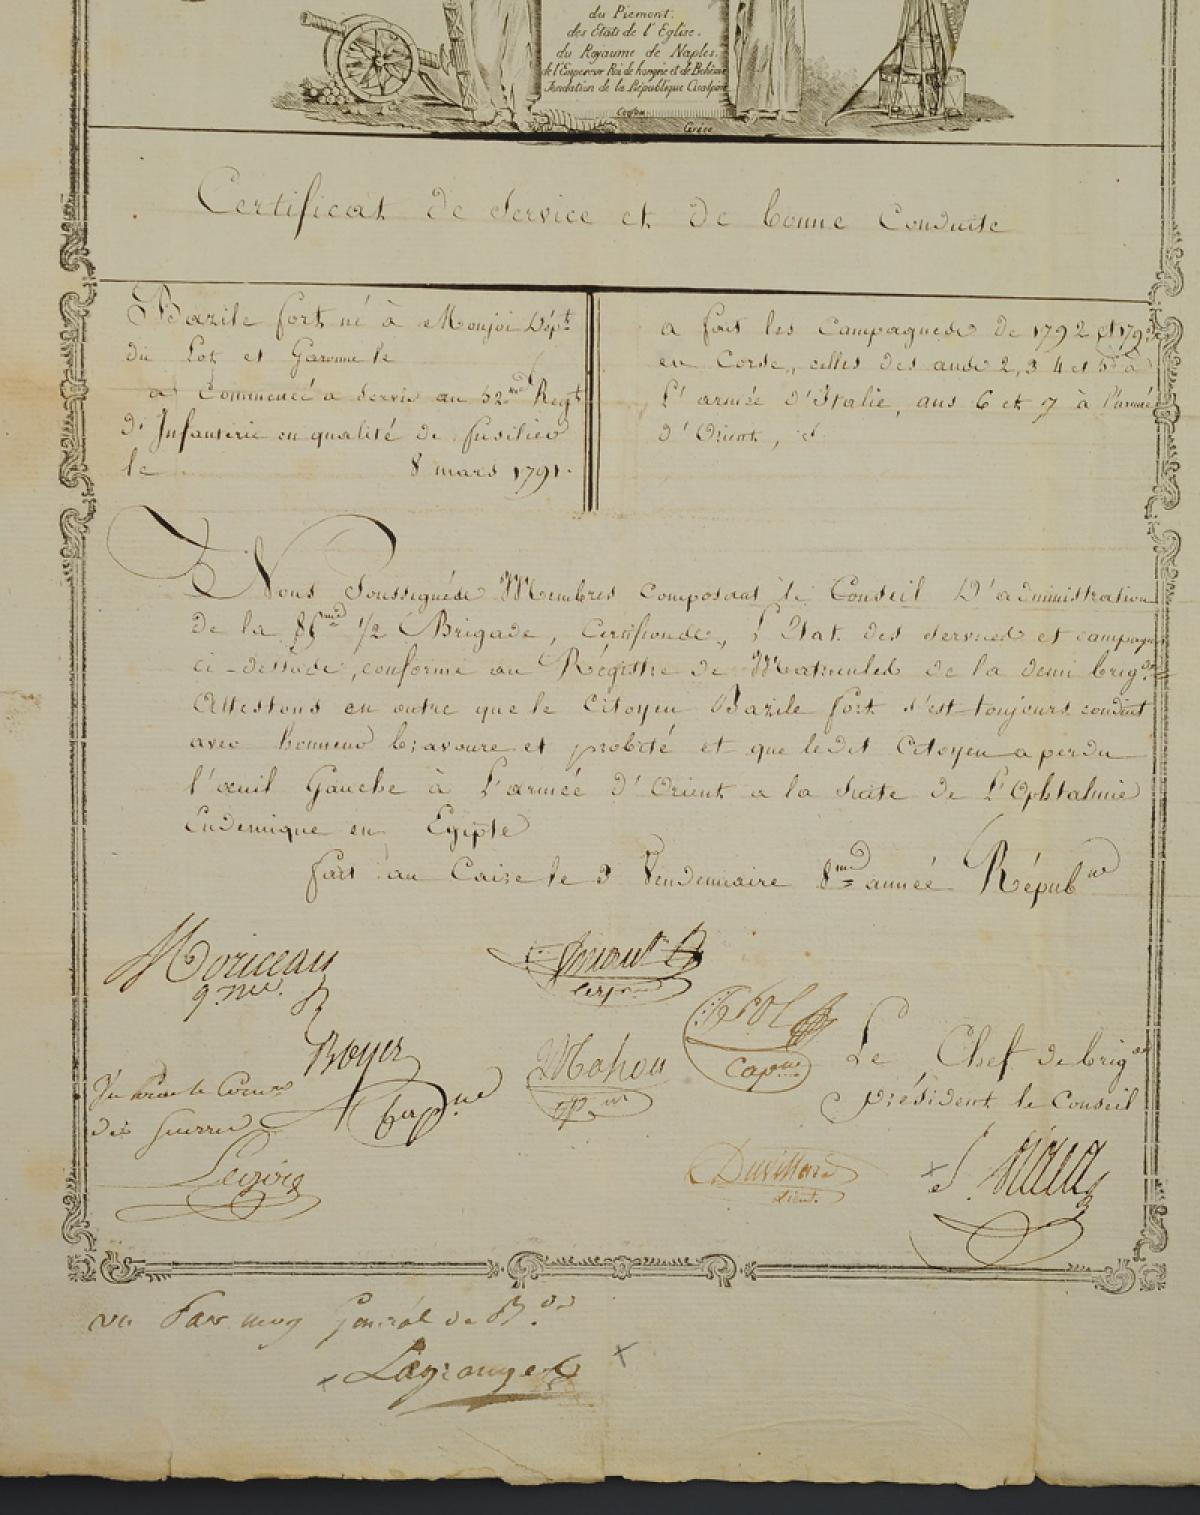 du Piemont.
des Etats de l'Eglise.
du Royaume de Naples.
de l'Empereur Roi de hongrie et de Bohême
Fondation de la République Cisalpine
Certificat de Service et de bonne Conduite
Bazile fort né à Monjoi Dépt.
du Lot et Garonne le
a Commencé a Servir au 52me Regt
d'Infanterie en qualité de fusilier
le 8 mars 1791.
a fait les Campagnes de 1792 et 179
en Corse, celles des ans 2, 3 4 et 5 à
L'armée d'Italie, ans 6 et 7 à l'armée
d'Orient,
Nous Soussignés Membres composant le Conseil D'administration
de la me 1/2 Brigade, Certifions, L'Etat des services et campagnes
ci-dessus, conforme au Régistre de Matricules de la demi brigde
Attestons en outre que le Citoyen Bazile fort s'est toujours conduit
avec honneur bravoure et probité et que ledit Citoyen a perdu
l'œuil Gauche à L'armée d'Orient a la suite de L'Ophtalmie
Endemique en Egipte
fait au Caire le 3 Vendemiaire 8me année Répubne
Moriceau
Boyer
Capne
Mahou
capne
Le Chef de brigde
président le Conseil
des Guerres
Duvillard
Lieut.
vu Par moy Général de B.de
Lagrange